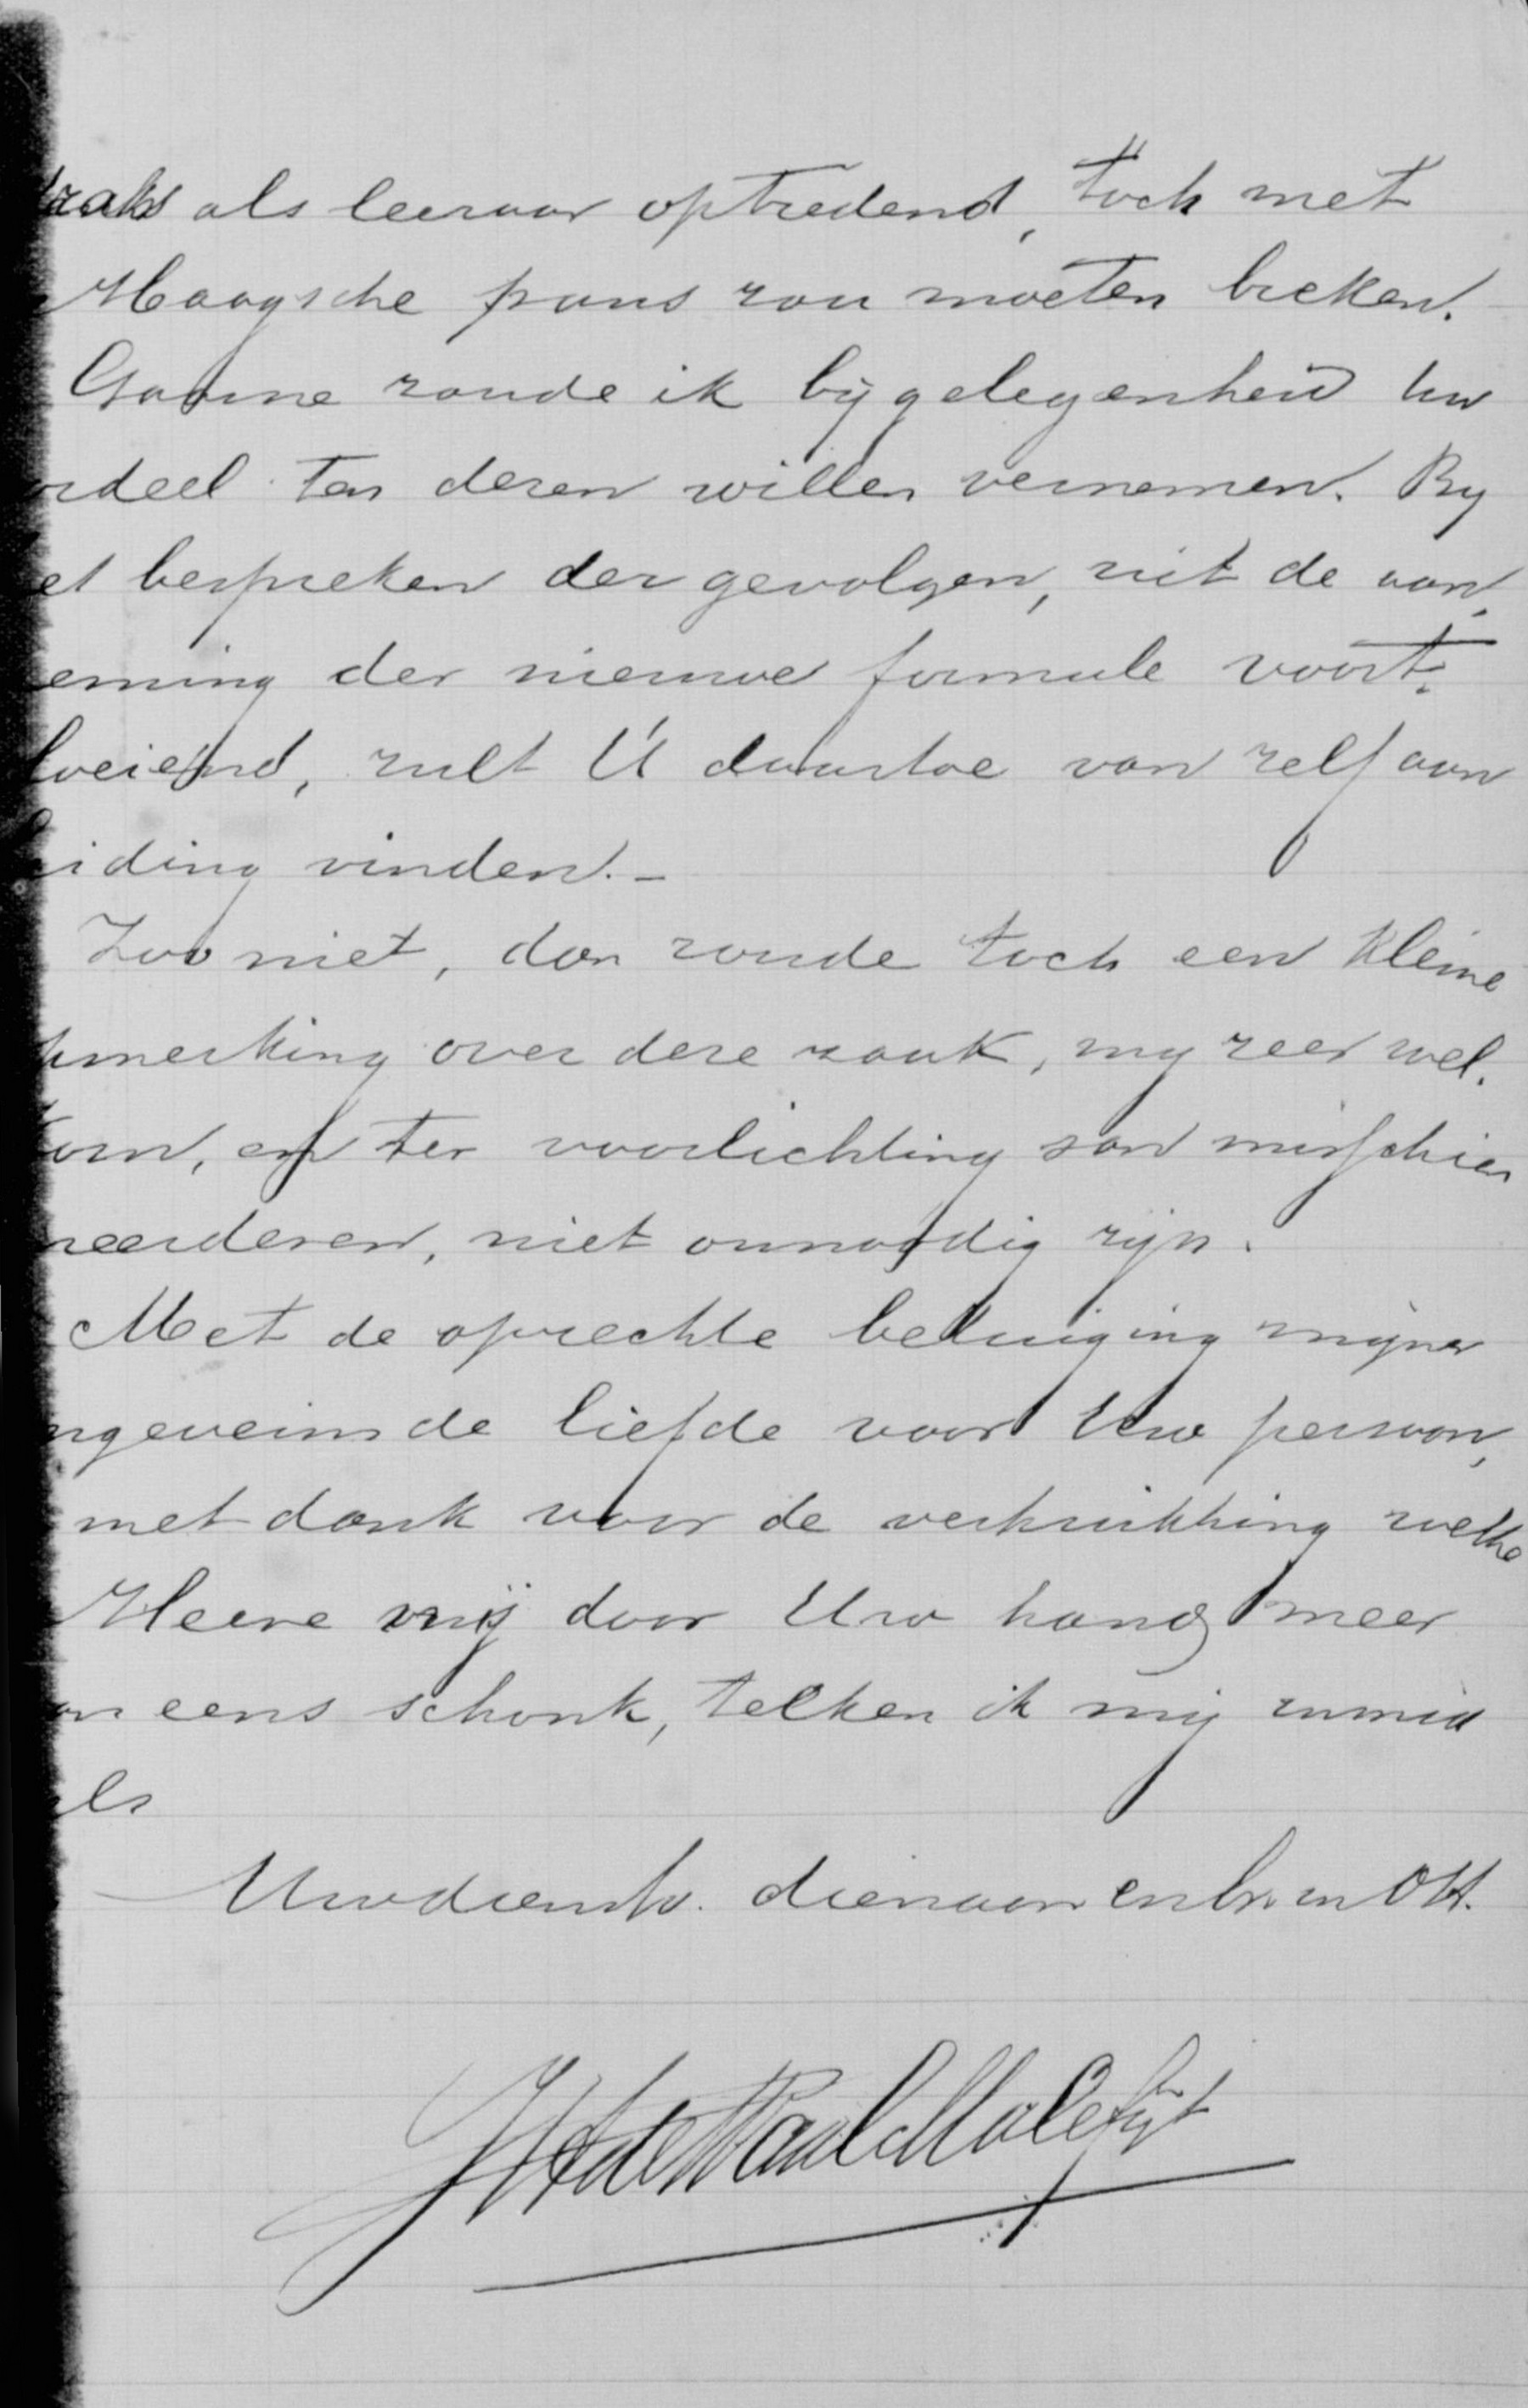 traks als leeraar optredend, toch met
Haagsche paus zou moeten breken.
Gaarne zoude ik bij gelegenheid Uw
ordeel ten dezen willen vernemen. By
et bespreken der gevolgen, uit de aan,
eming der nieuwe formule voort,
loeiend, zult U daartoe van zelf aan
iding vinden. _
Zoo niet, dan zoude toch een kleine
pmerking over deze zaak, my zeer wel,
kom, en ter voorlichting van misschien
meerderen, niet onnoodig zijn.
Met de oprechte betuiging mijner
ngeveinsde liefde voor Uw persoon,
met dank voor de verkwikking welke
Heere mij door Uw hand meer
an eens schonk, teeken ik mij inmid
els
Uw dienstv. dienaar en br. in
JH de Waal Malefijt